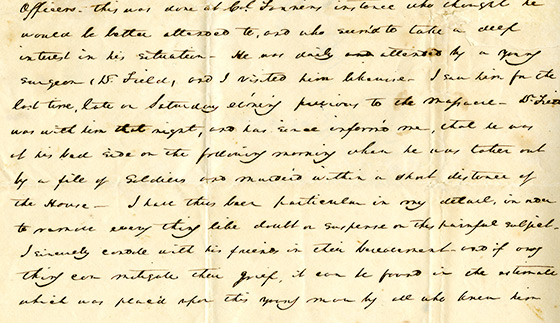 Officers - this was done at Col. Fannin's instance who thought he
would be better attended to, and who seem'd to take a deep
interest in his situation - He was daily attended by a young
surgeon (Dr Field) and I visited him likewise - I saw him for the
last time, late on Saturday evening previous to the massacre - Dr Field
was with him that night, and has since inform'd me, that he was
at his bed side on the following morning when he was taken out
by a file of Soldiers and murder'd within a short distance of
the House - I have thus been particular in my detail, in order
to remove every thing like doubt or suspense on this painful subject -
I sincerely condole with his friends in their bereavement - and if any
thing can mitigate their grief, it can be found in the estimate
which was plac'd upon this young man by all who knew him